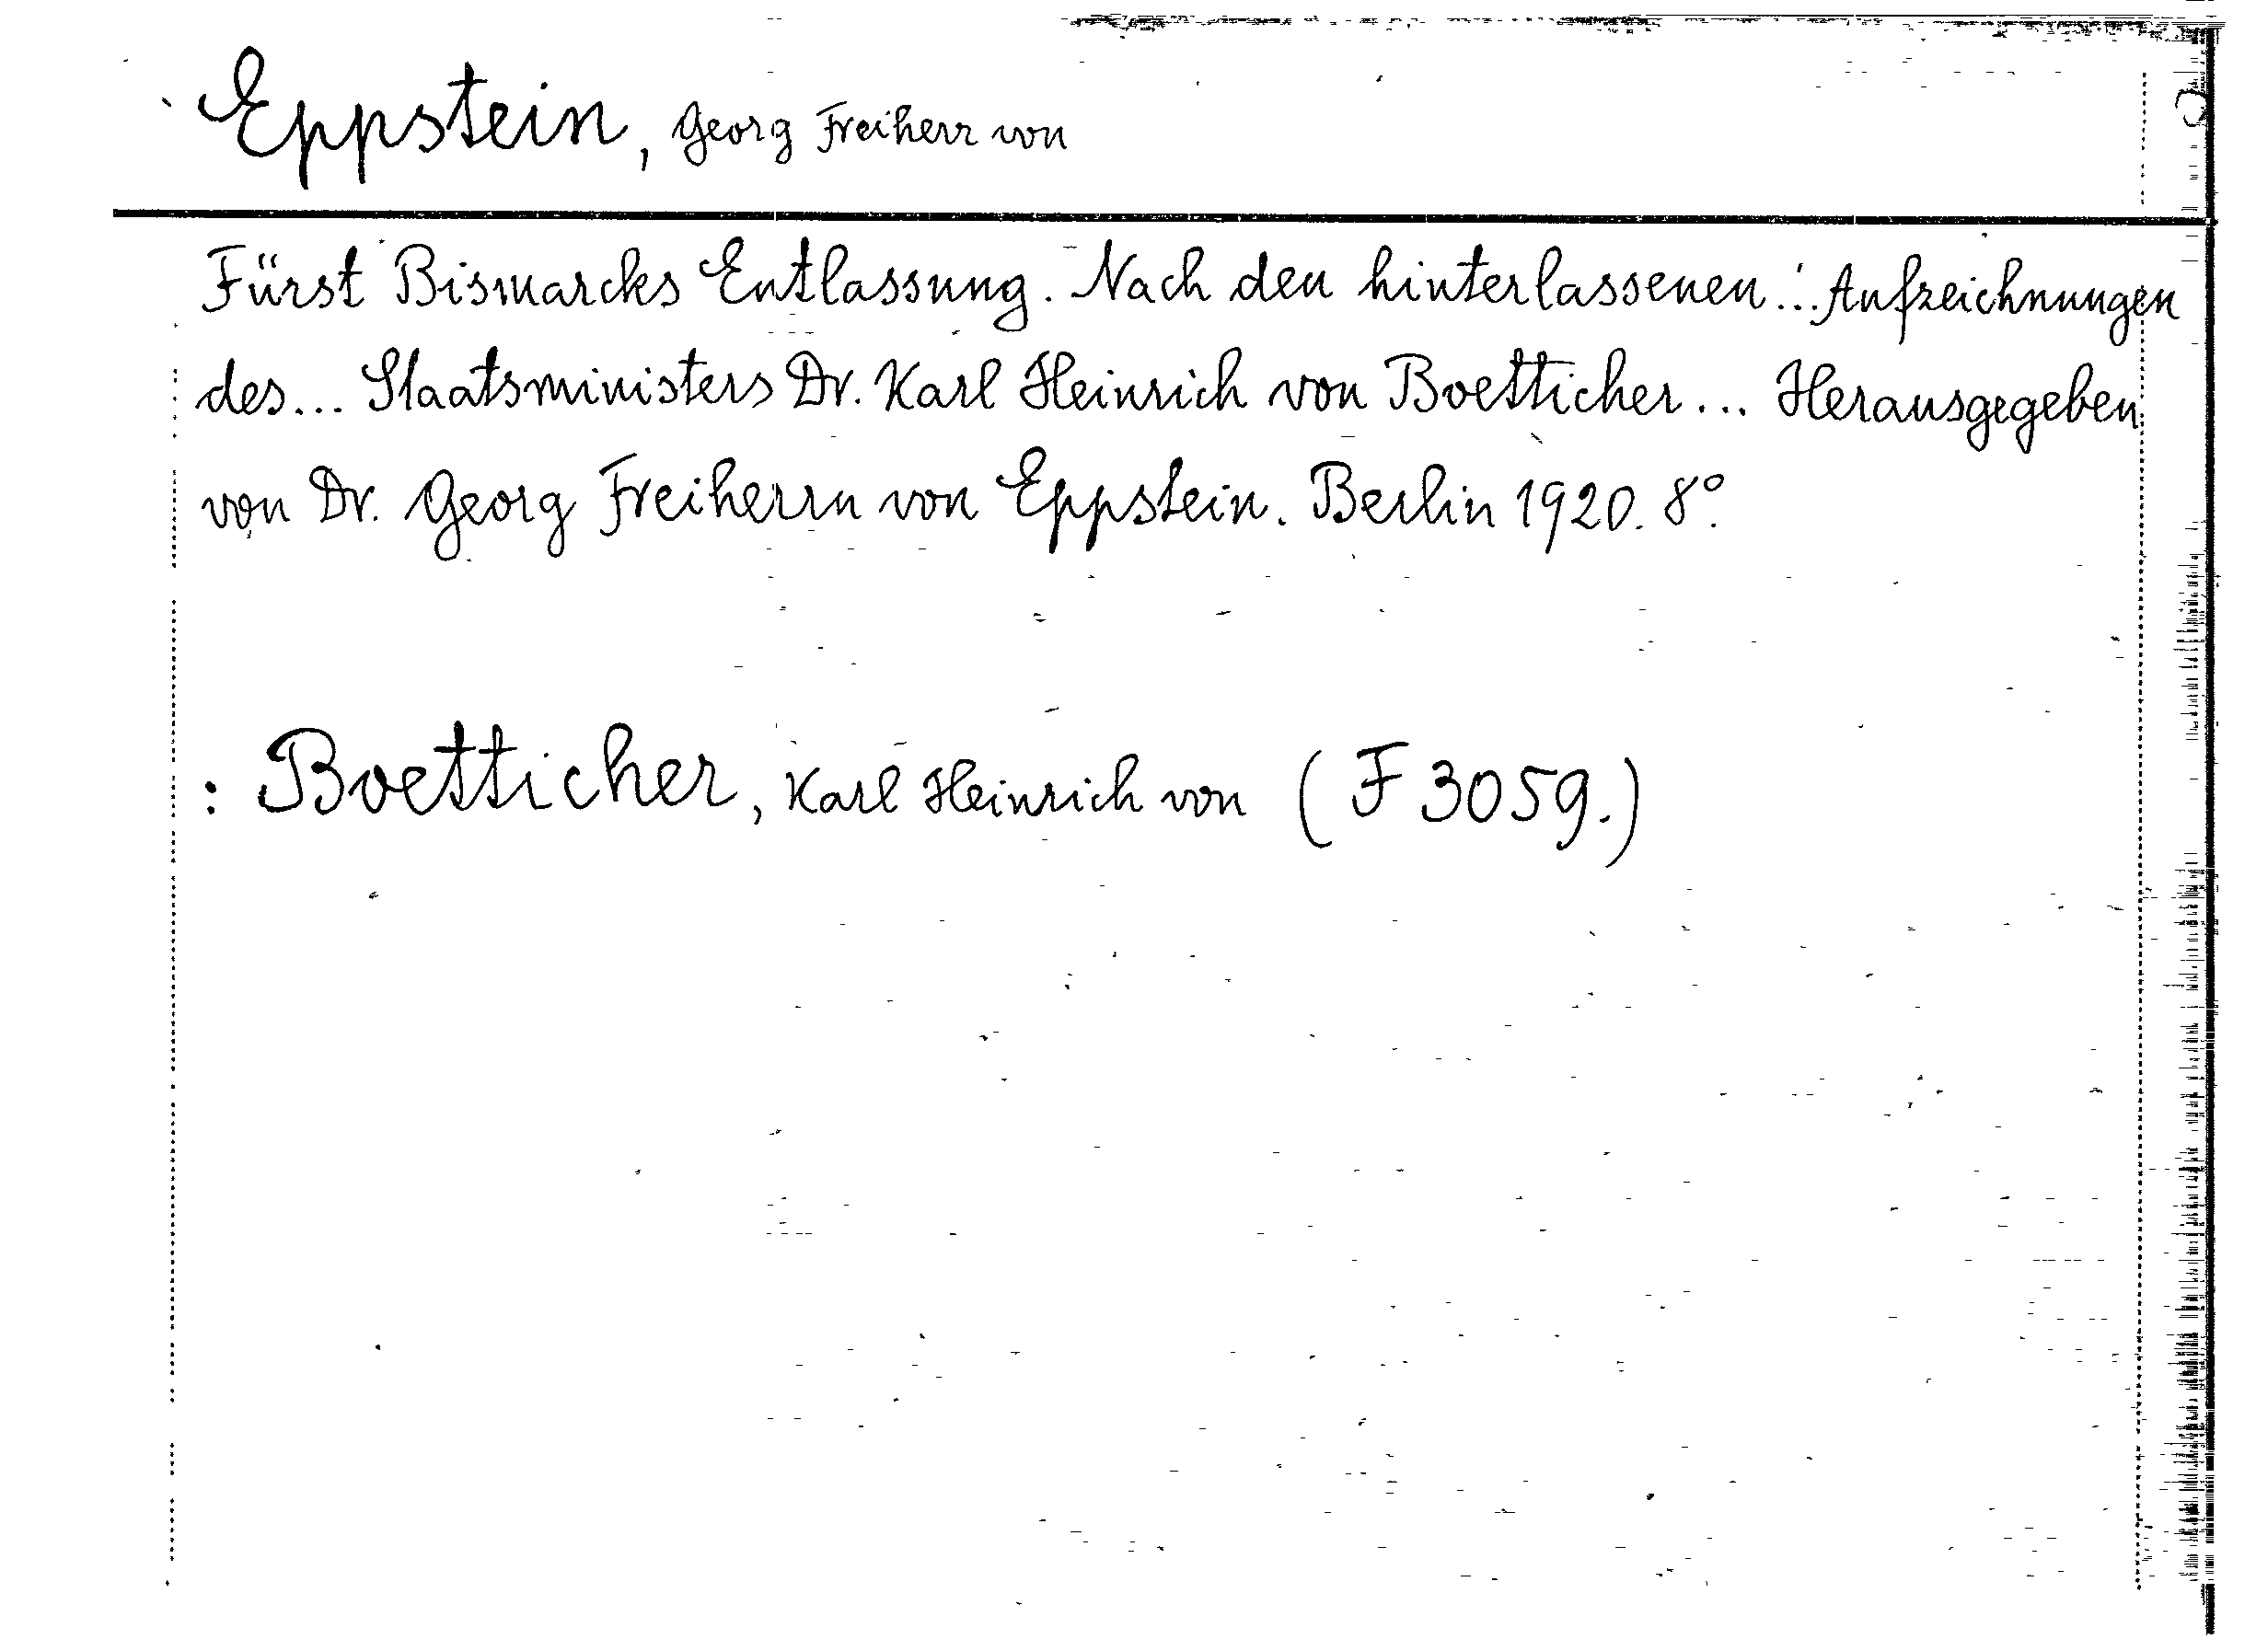 Eppstein, Georg Freiherr von
Fürst Bismarcks Entlassung. Nach den hinterlassenen ... Aufzeichnungen
des... Staatsministers Dr. Karl Heinrich von Boetticher... Herausgegeben
von Dr. Georg Freiherrn von Eppstein. Berlin 1920. 8°.
: Boetticher, Karl Heinrich von (F 3059.)